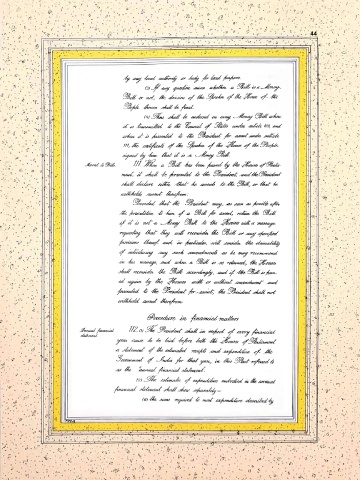 44
by any local authority or body for local purposes.
(3) If any question arises whether a Bill is a Money
Bill or not, the decision of the Speaker of the House of the
People thereon shall be final.
(4) There shall be endorsed on every Money Bill when
it is transmitted to the Council of States under article 109, and
when it is presented to the President for assent under article
111, the certificate of the Speaker of the House of the People
signed by him that it is a Money Bill.
Assent to Bills.
111. When a Bill has been passed by the Houses of Parlia-
ment, it shall be presented to the President, and the President
shall declare either that he assents to the Bill, or that he
withholds assent therefrom:
Provided that the President may, as soon as possible after
the presentation to him of a Bill for assent, return the Bill
if it is not a Money Bill to the Houses with a message
requesting that they will reconsider the Bill or any specified
provisions thereof and, in particular, will consider the desirability
of introducing any such amendments as he may recommend
in his message, and when a Bill is so returned, the Houses
shall reconsider the Bill accordingly, and if the Bill is pass-
ed again by the Houses with or without amendment and
presented to the President for assent, the President shall not
withhold assent therefrom.
Procedure in financial matters
Annual financial
statement.
112. (1) The President shall in respect of every financial
year cause to be laid before both the Houses of Parliament
a statement of the estimated receipts and expenditure of the
Government of India for that year, in this Part referred to
as the "annual financial statement".
(2) The estimates of expenditure embodied in the annual
financial statement shall show separately—
(a) the sums required to meet expenditure described by